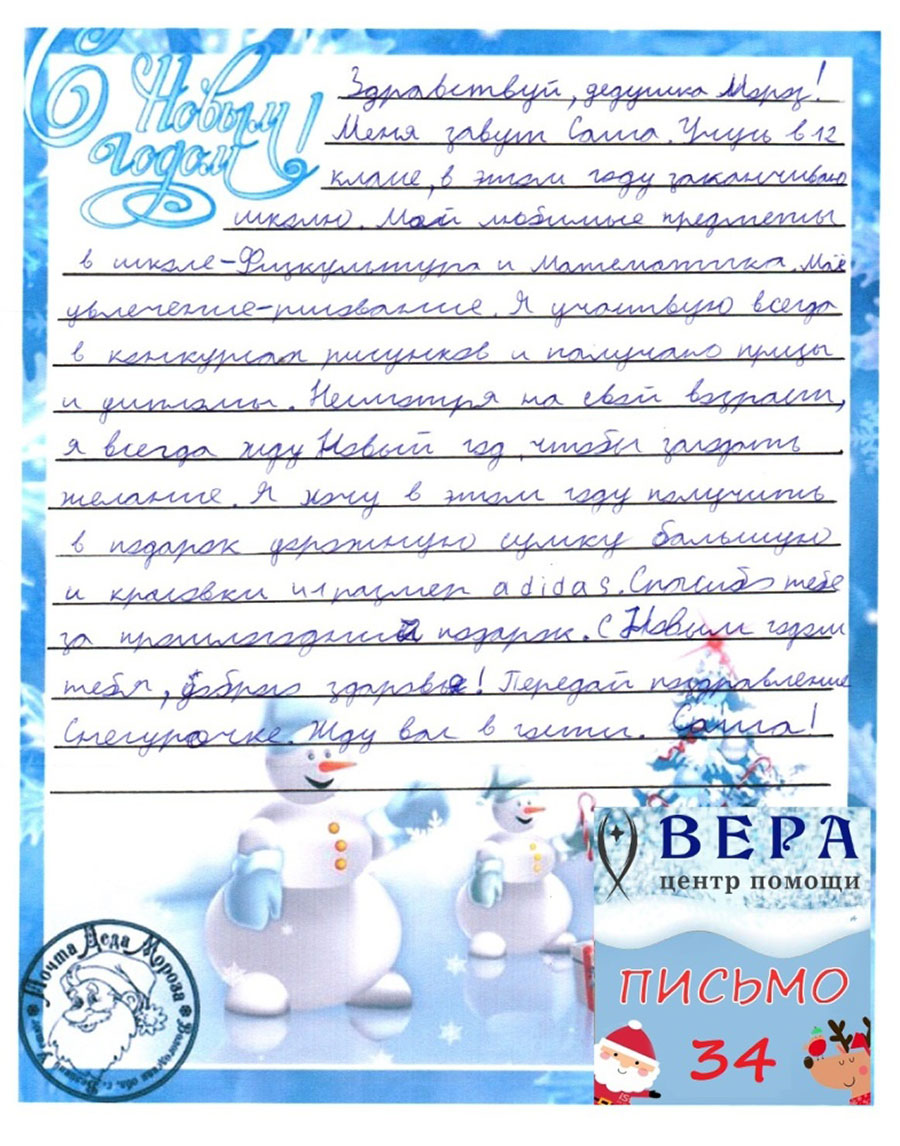 С Новым
годом!
Здравствуй, дедушка Мороз!
Меня завут Саша. Учусь в 12
класе, в этом году заканчиваю
школю. Мои любимые предметы
в школе-Физкультура и Математика. Моё
увлечение-рисование. Я участвую всегда
в конкурсах рисунков и получаю призы
и дипломы. Несмотря на свой возраст,
я всегда жду Новый год, чтобы загадать
желание. Я хочу в этом году получить
в подарок дорожную сумку большую
и красовки размер adidas. Спасибо тебе
за прошлогодний подарок. С Новым годом
тебя, доброго здоровья! Передай поздравление
Снегурочке. Жду вас в гости. Саша!
ВЕРА
центр помощи
ПИСЬМО
34
Почта Деда Мороза